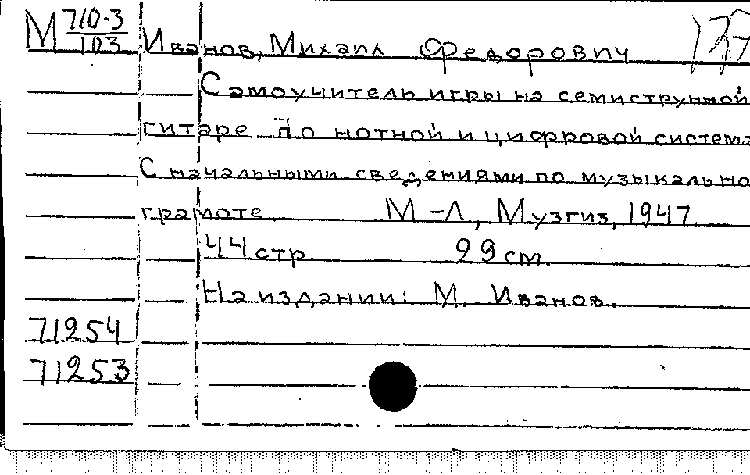 М 710-3/103 Иванов, Михаил Федорович
Самоучитель игры на семиструнной
гитаре по нотной и цифровой система
С начальными сведениями по музыкально
грамоте. М-Л, Музгиз, 1947
44 стр 29 см.
На издании: М. Иванов.
71254
71253